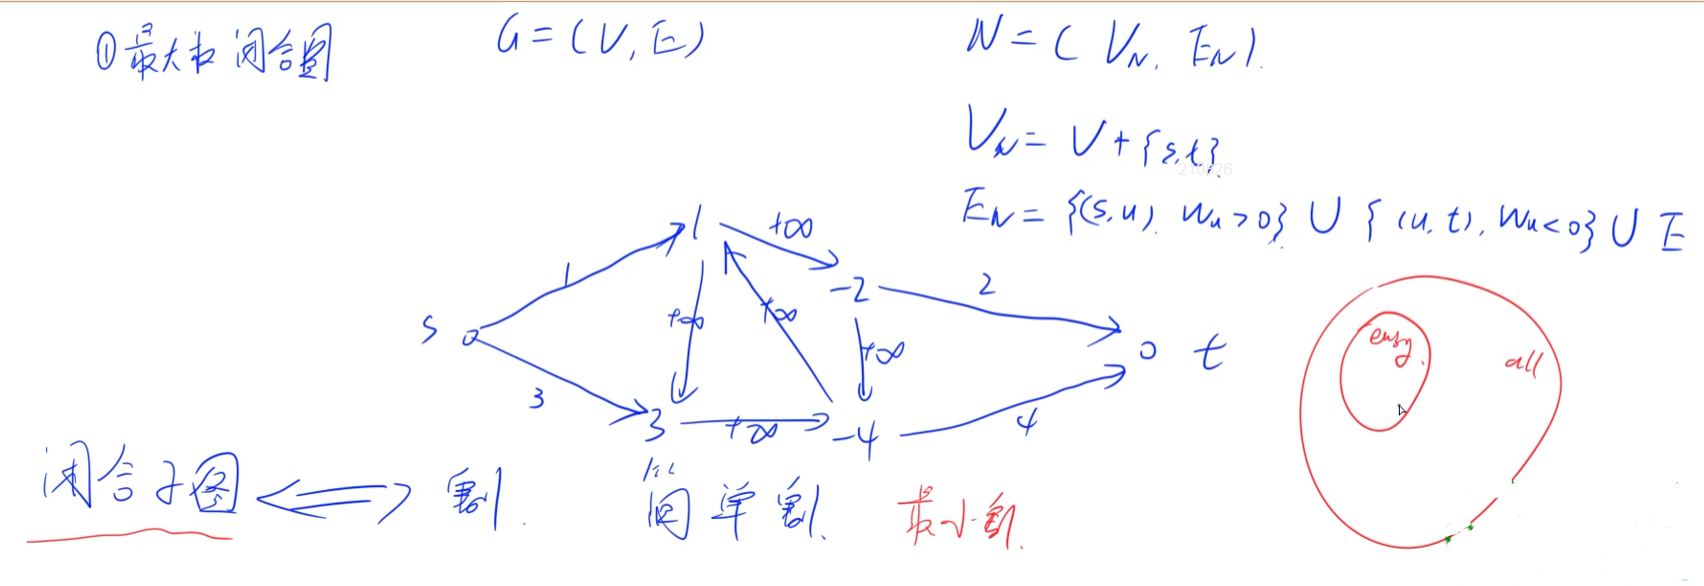 ①最大权闭合图
G=(V,E)
N=(V_N, E_N).
V_N=V+{s,t}
210326
E_N={(s,u), w_u>0} ∪ {(u,t), w_u<0} ∪ E
1
+∞
1
-2
2
+∞
+∞
+∞
s
t
3
3
+∞
-4
4
easy
all
闭合子图 ⟺ 割.
简单割.
最小割.